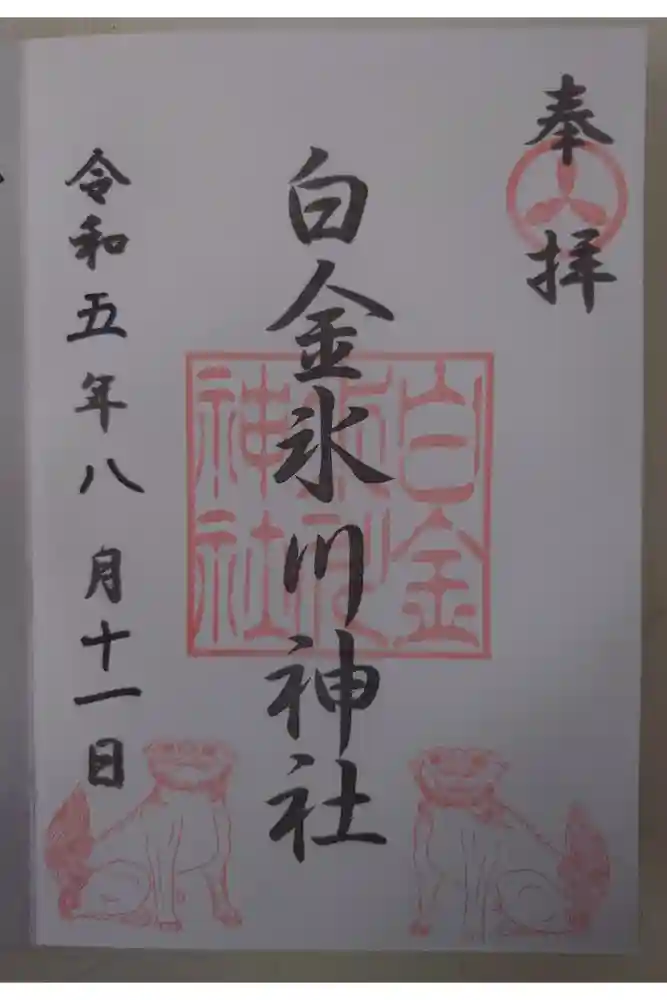 奉拝
白金氷川神社
令和五年八月十一日
白金
氷川
神社